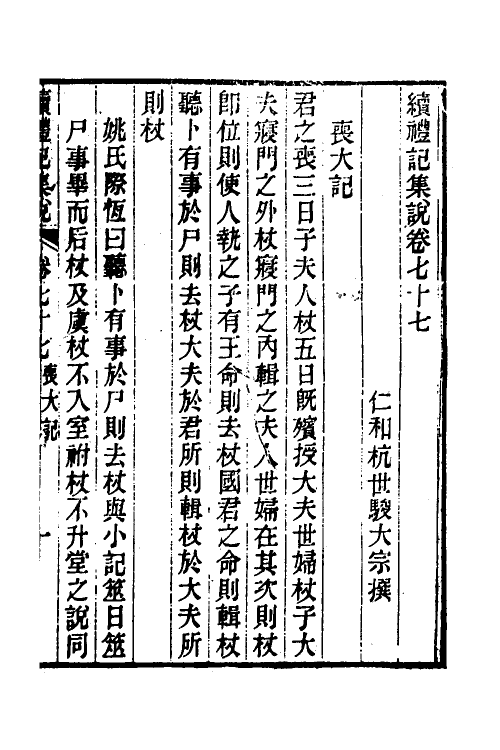 續禮記集說卷七十七
仁和杭世駿大宗撰
喪大記
君之喪三日子夫人杖五日旣殯授大夫世婦杖子大
夫寢門之外杖寢門之內輯之夫人世婦在其次則杖
卽位則使人執之子有王命則去杖國君之命則輯杖
聽卜有事於尸則去杖大夫於君所則輯杖於大夫所
則杖
姚氏際恆曰聽卜有事於尸則去杖與小記筮日筮
尸事畢而后杖及虞杖不入室祔杖不升堂之說同
續禮記集說 卷七十七 喪大記 一